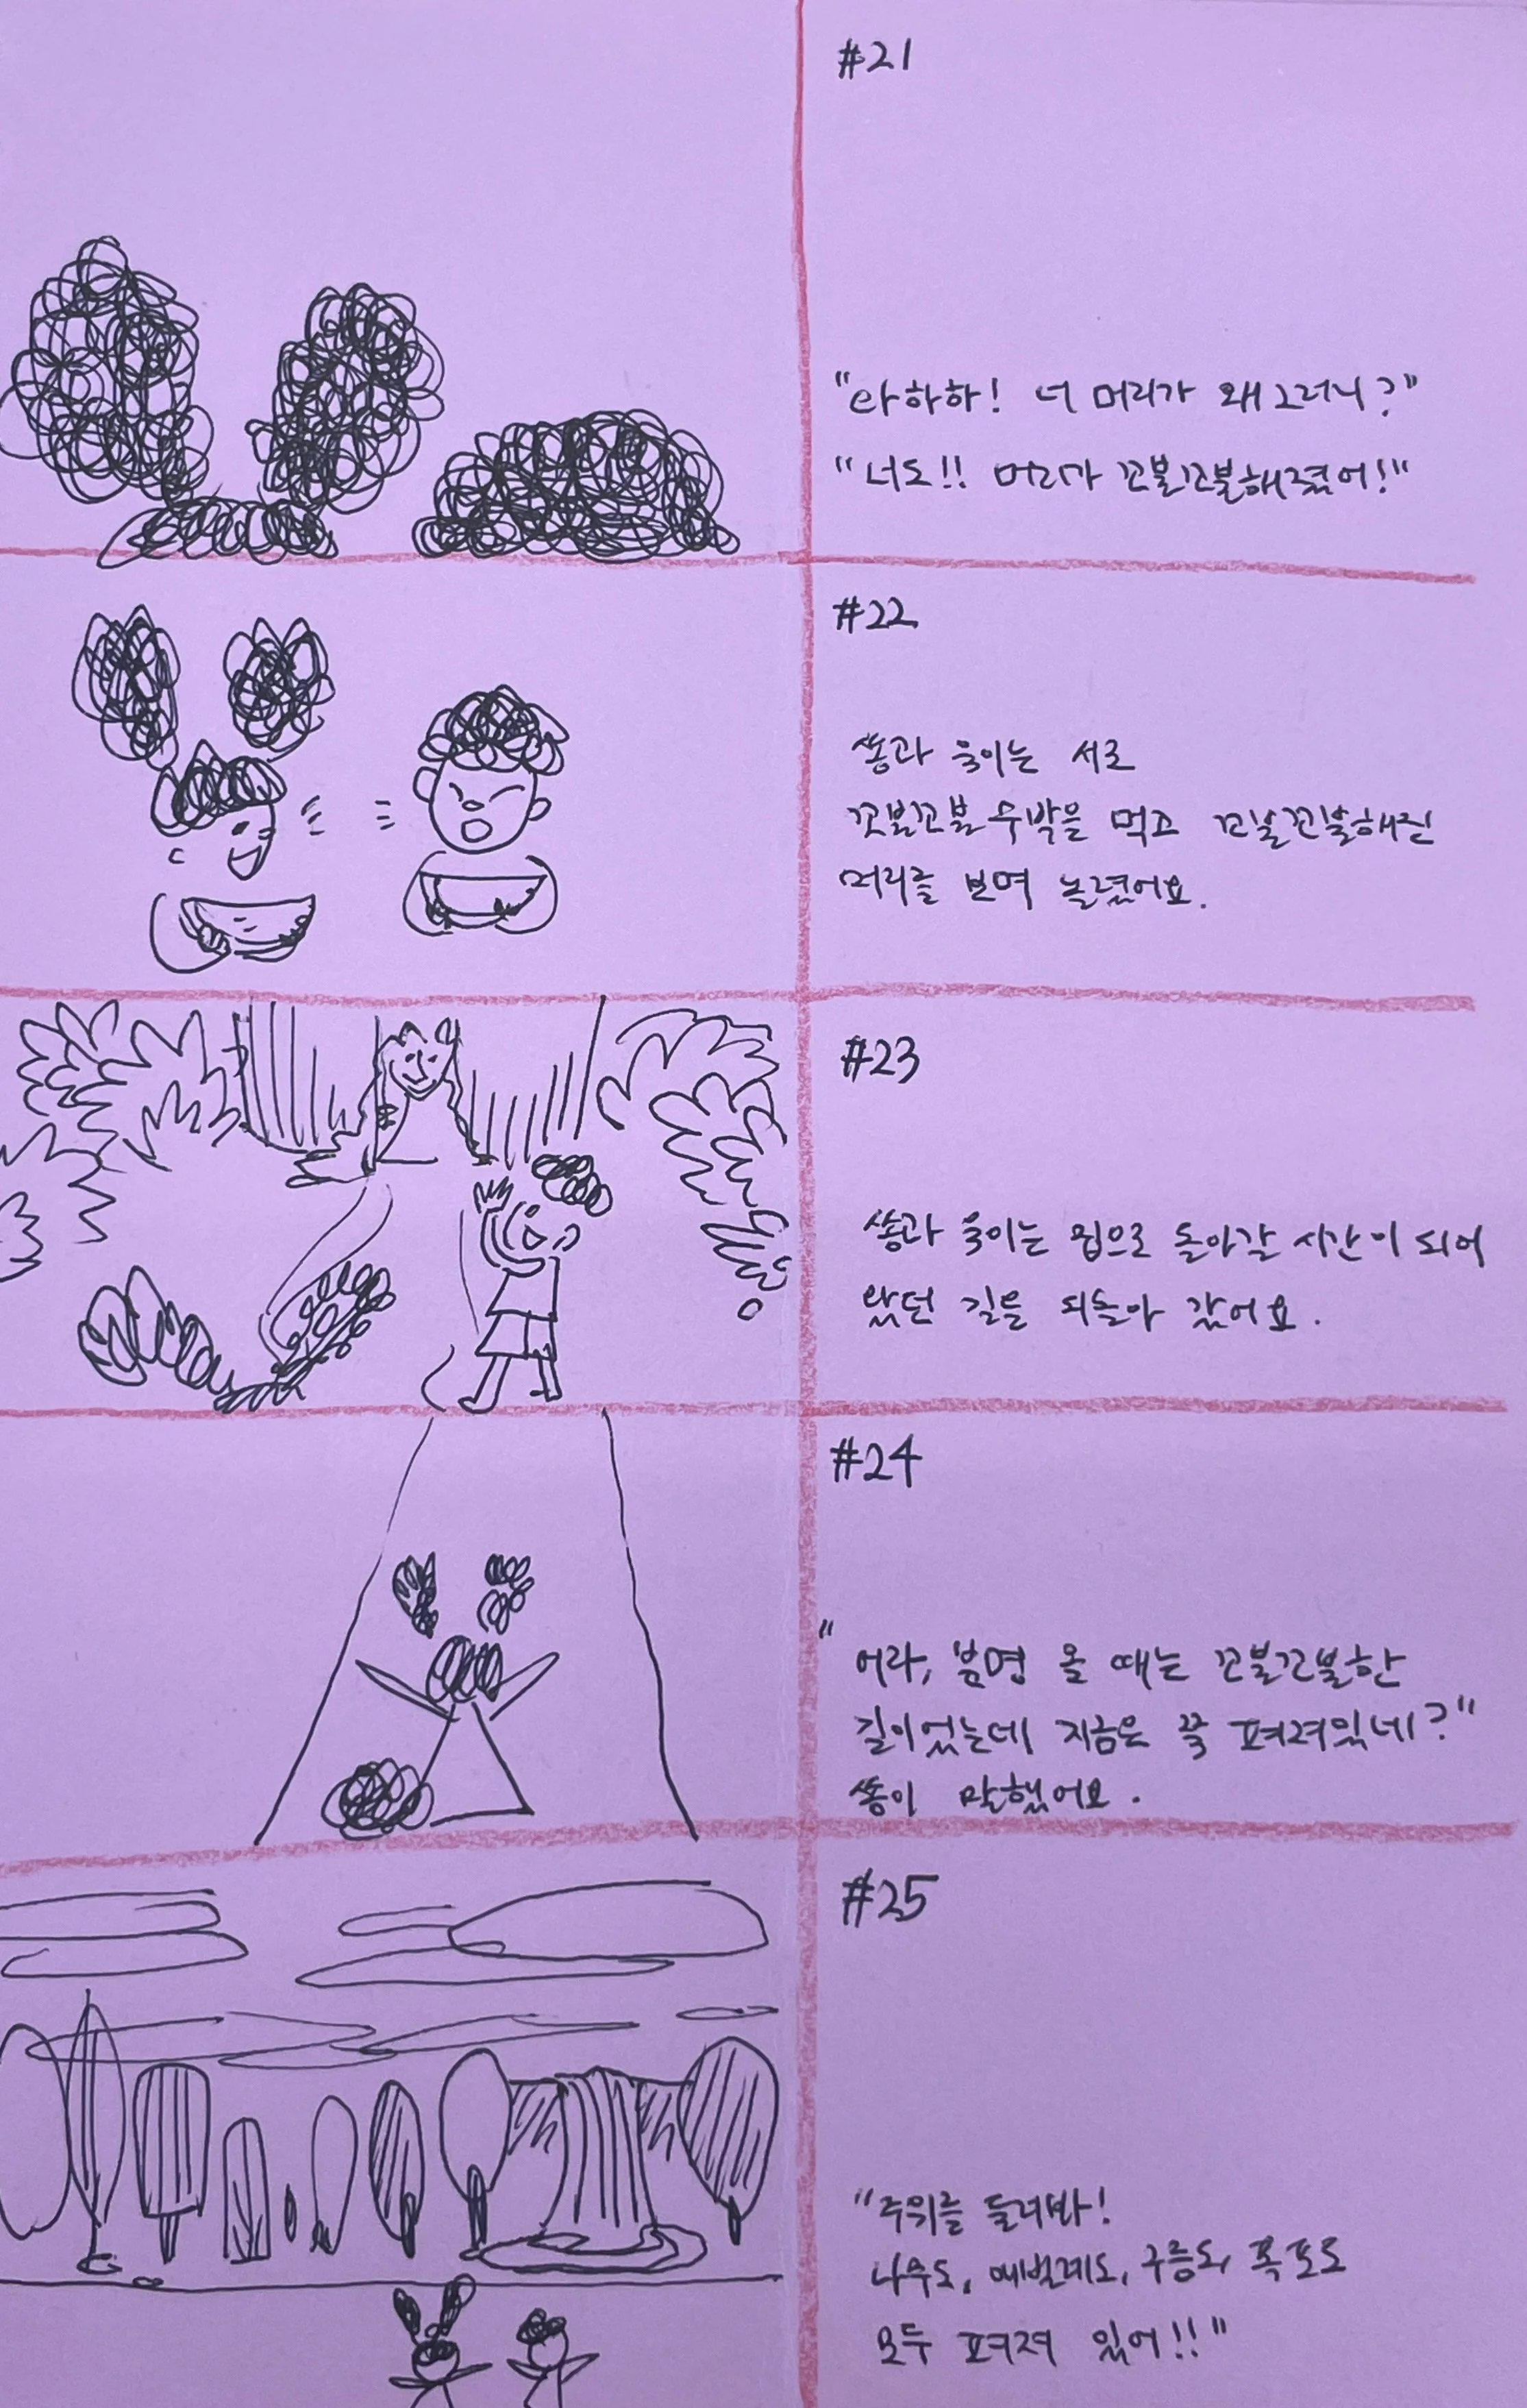 #21
"아하하! 너 머리가 왜 그러니?"
"너도!! 머리가 꼬불꼬불해졌어!"
#22
쏭과 욱이는 서로
꼬불꼬불 수박을 먹고 꼬불꼬불해진
머리를 보며 놀렸어요.
#23
쏭과 욱이는 집으로 돌아갈 시간이 되어
왔던 길을 되돌아 갔어요.
#24
"어라, 분명 올 때는 꼬불꼬불한
길이었는데 지금은 쭉 펴져있네?"
쏭이 말했어요.
#25
"주위를 둘러봐!
나무도, 애벌레도, 구름도, 폭포도
모두 펴져 있어!!"